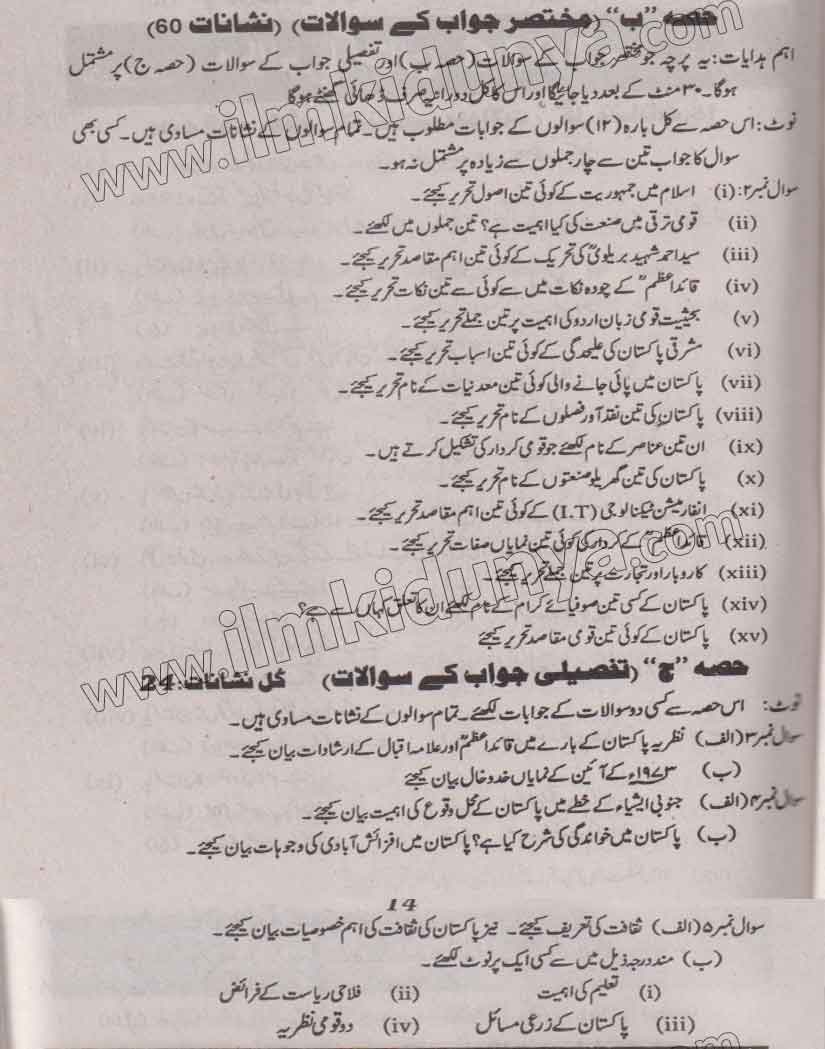 حصہ "ب" (مختصر جواب کے سوالات) (نشانات 60)
اہم ہدایات: یہ پرچہ جو مختصر جواب کے سوالات (حصہ ب) اور تفصیلی جواب کے سوالات (حصہ ج) پر مشتمل
ہوگا۔ ۳۰ منٹ کے بعد دیا جائیگا اور اس کا کل دورانیہ صرف ڈھائی گھنٹے ہوگا
نوٹ: اس حصہ سے کل بارہ (۱۲) سوالوں کے جوابات مطلوب ہیں۔ تمام سوالوں کے نشانات مساوی ہیں۔ کسی بھی
سوال کا جواب تین سے چار جملوں سے زیادہ پر مشتمل نہ ہو۔
سوال نمبر ۲: (i) اسلام میں جمہوریت کے کوئی تین اصول تحریر کیجئے۔
(ii) قومی ترقی میں صنعت کی کیا اہمیت ہے؟ تین جملوں میں لکھئے۔
(iii) سید احمد شہید بریلویؒ کی تحریک کے کوئی تین اہم مقاصد تحریر کیجئے۔
(iv) قائد اعظمؒ کے چودہ نکات میں سے کوئی سے تین نکات تحریر کیجئے۔
(v) بحیثیت قومی زبان اردو کی اہمیت پر تین جملے تحریر کیجئے۔
(vi) مشرقی پاکستان کی علیحدگی کے کوئی تین اسباب تحریر کیجئے۔
(vii) پاکستان میں پائی جانے والی کوئی تین معدنیات کے نام تحریر کیجئے۔
(viii) پاکستان کی تین نقد آور فصلوں کے نام تحریر کیجئے۔
(ix) ان تین عناصر کے نام لکھئے جو قومی کردار کی تشکیل کرتے ہیں۔
(x) پاکستان کی تین گھریلو صنعتوں کے نام تحریر کیجئے۔
(xi) انفارمیشن ٹیکنالوجی (I.T) کے کوئی تین اہم مقاصد تحریر کیجئے۔
(xii) قائد اعظمؒ کے کردار کی کوئی تین نمایاں صفات تحریر کیجئے۔
(xiii) کاروبار اور تجارت پر تین جملے تحریر کیجئے۔
(xiv) پاکستان کے کسی تین صوفیائے کرام کے نام لکھئے ان کا تعلق کہاں سے ہے؟
(xv) پاکستان کے کوئی تین قومی مقاصد تحریر کیجئے
حصہ "ج" (تفصیلی جواب کے سوالات) کل نشانات: 24
نوٹ: اس حصہ سے کسی دو سوالات کے جوابات لکھئے۔ تمام سوالوں کے نشانات مساوی ہیں۔
سوال نمبر ۳ (الف) نظریہ پاکستان کے بارے میں قائد اعظمؒ اور علامہ اقبال کے ارشادات بیان کیجئے۔
(ب) ۱۹۷۳ء کے آئین کے نمایاں خدوخال بیان کیجئے
سوال نمبر ۴ (الف) جنوبی ایشیاء کے خطے میں پاکستان کے محل وقوع کی اہمیت بیان کیجئے۔
(ب) پاکستان میں خواندگی کی شرح کیا ہے؟ پاکستان میں افزائش آبادی کی وجوہات بیان کیجئے۔
14
سوال نمبر ۵ (الف) ثقافت کی تعریف کیجئے۔ نیز پاکستان کی ثقافت کی اہم خصوصیات بیان کیجئے۔
(ب) مندرجہ ذیل میں سے کسی ایک پر نوٹ لکھئے۔
(i) تعلیم کی اہمیت (ii) فلاحی ریاست کے فرائض
(iii) پاکستان کے زرعی مسائل (iv) دو قومی نظریہ
www.ilmkidunya.com
www.ilmkidunya.com
www.ilmkidunya.com